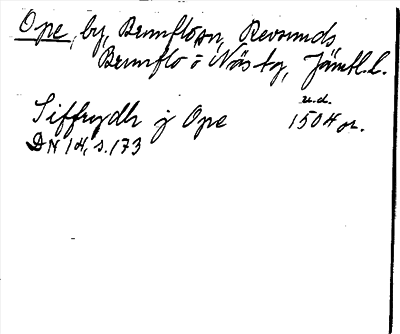 Ope, by, Brunflo sn, Revsunds
Brunflo o Näs tg, Jämtl. l.
u.d.
Siffrydh j Ope 1504 or.
DN 14, s. 173